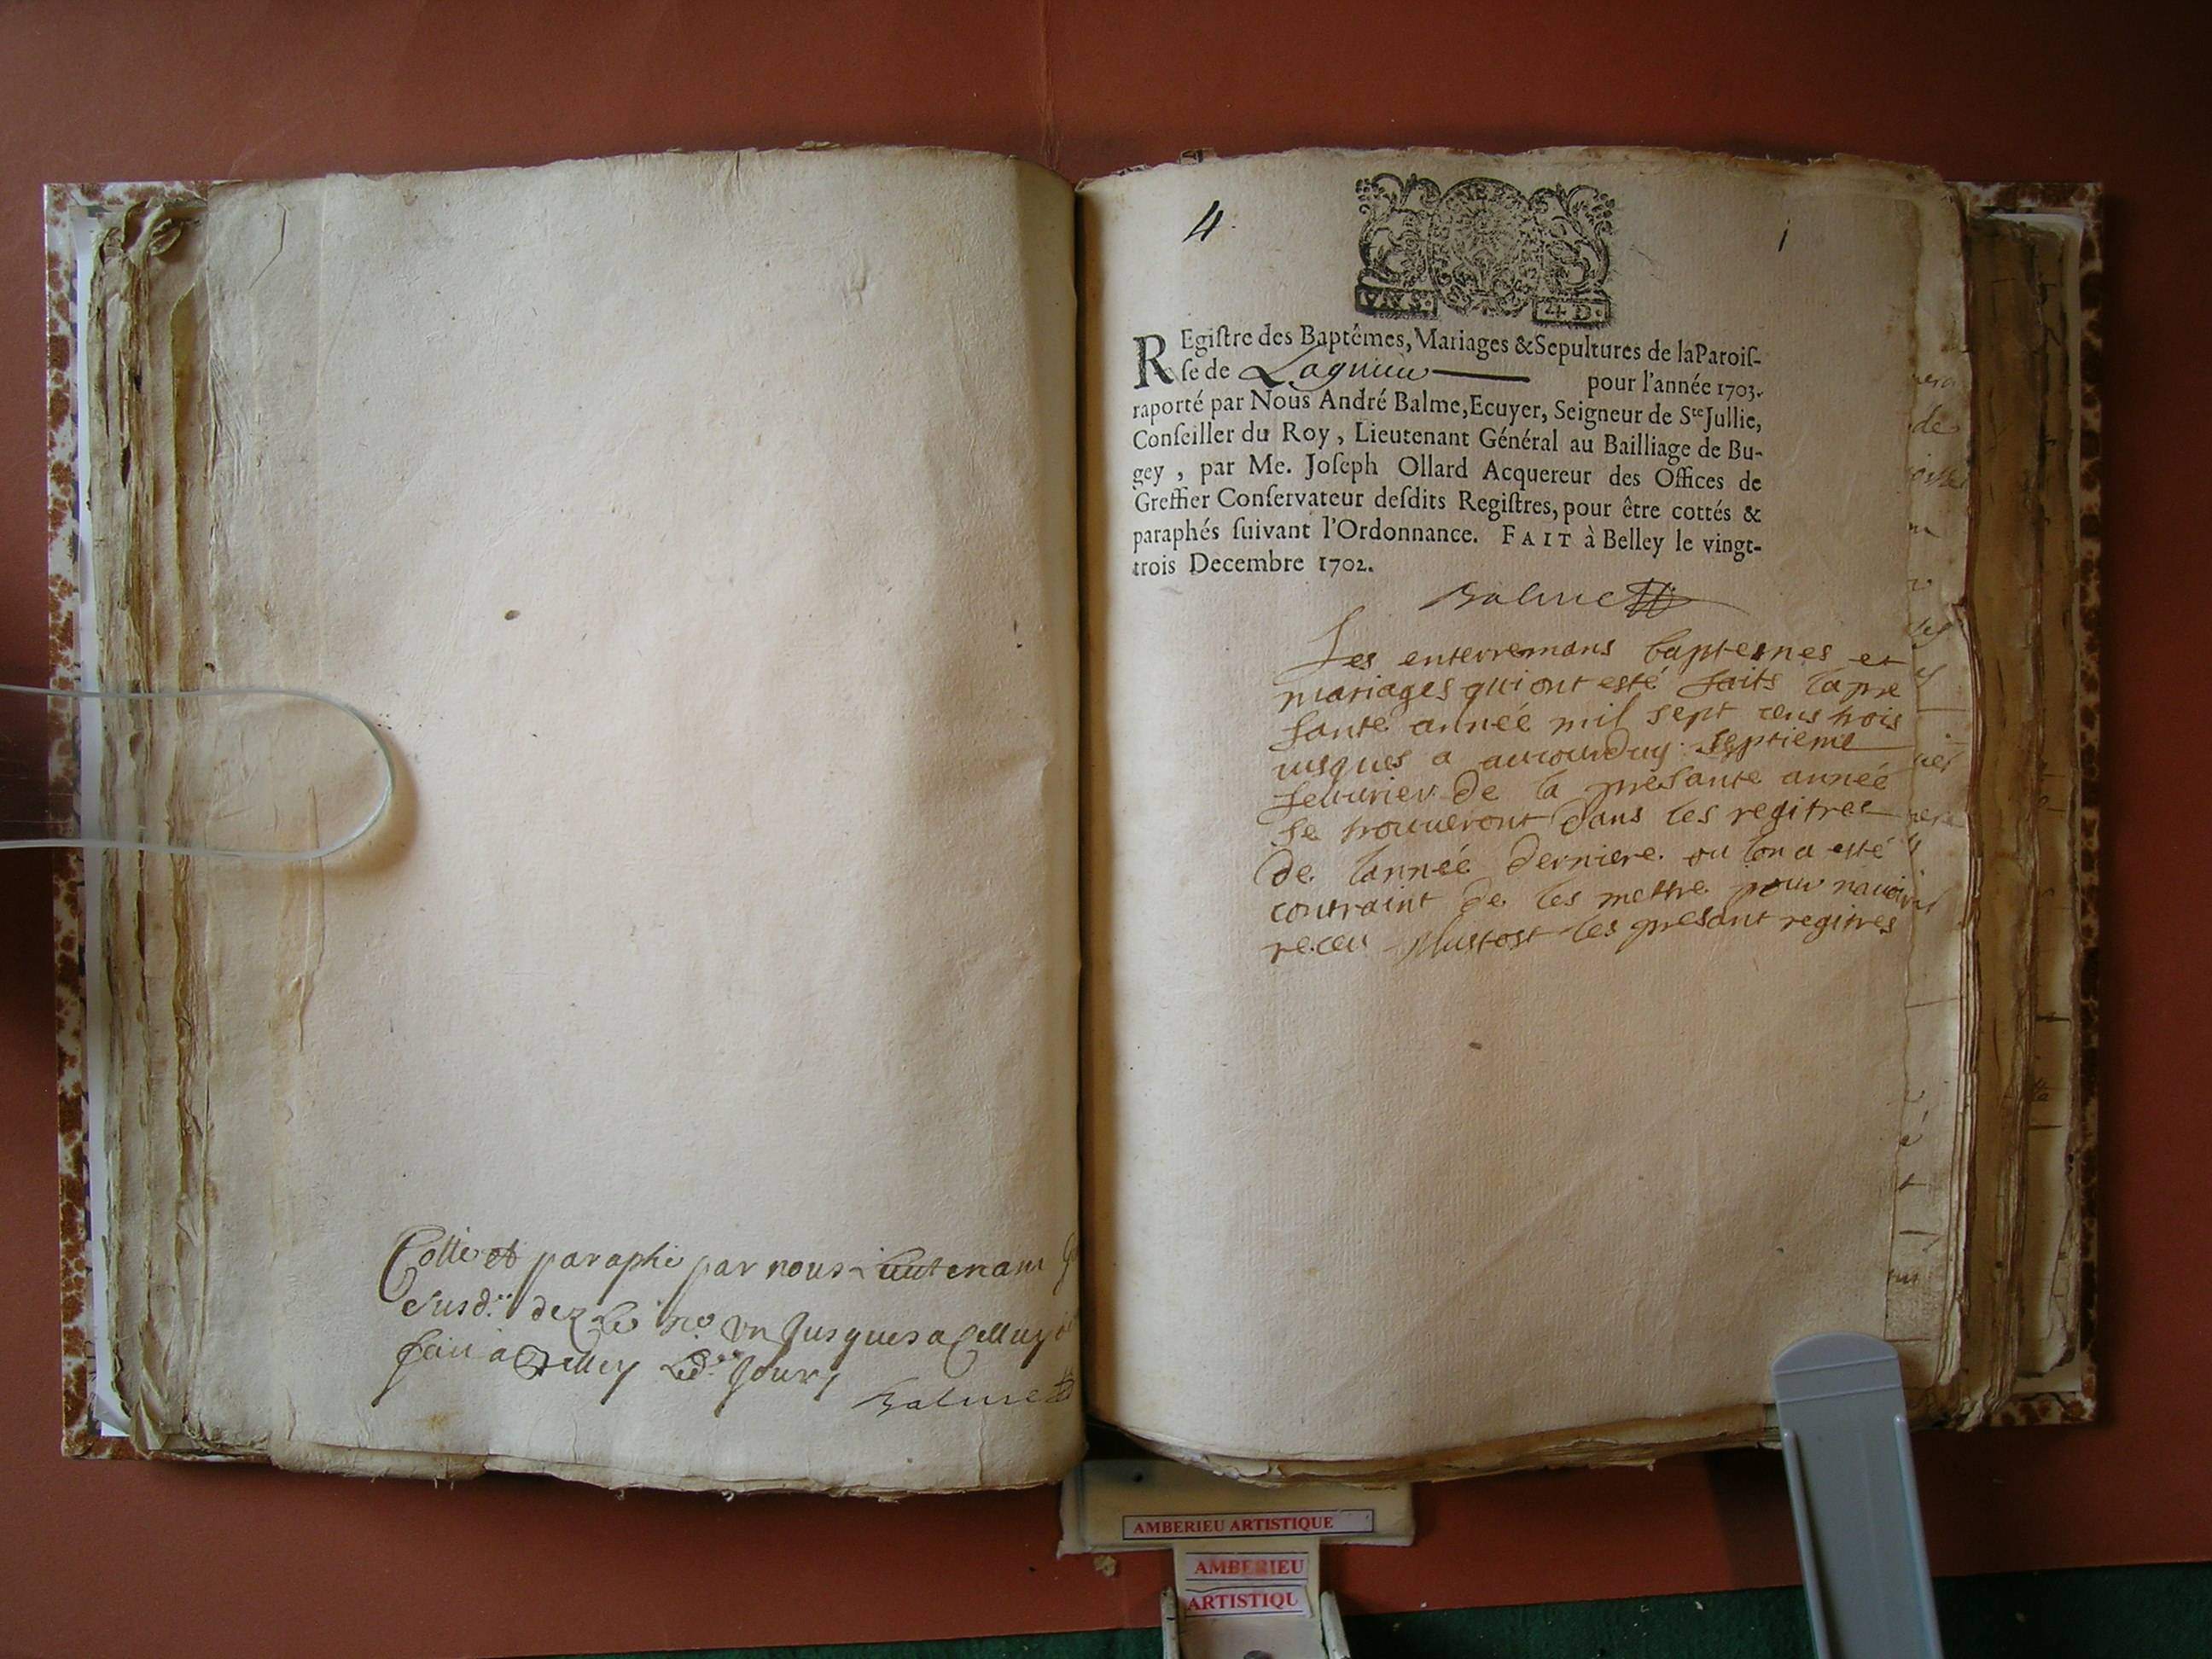 Cotté et paraphé par nous Lieutenant
susd.t dez le n.o un jusques a celluy
fait a Belley led.t jour
Balme
4
i
4.D.
REgiſtre des Baptêmes, Mariages & Sepultures de la Paroiſ-
ſe de Lagnieu pour l'année 1703.
raporté par Nous André Balme, Ecuyer, Seigneur de Ste Jullie,
Conſeiller du Roy, Lieutenant Général au Bailliage de Bu-
gey, par Me. Joſeph Ollard Acquereur des Offices de
Greffier Conſervateur deſdits Regiſtres, pour être cottés &
paraphés ſuivant l'Ordonnance. FAIT à Belley le vingt-
trois Decembre 1702.
Balme
Les enterremans baptesmes et
mariages qui ont esté faits la pre
sante année mil sept cens trois
jusques a aujourduy septieme
feuurier de la présante année
se trouueront dans les regitres
de lannée derniere ou lon a esté
contraint de les mettre pour nauoir
receu plustost les presant regitres
AMBERIEU ARTISTIQUE
AMBERIEU
ARTISTIQU